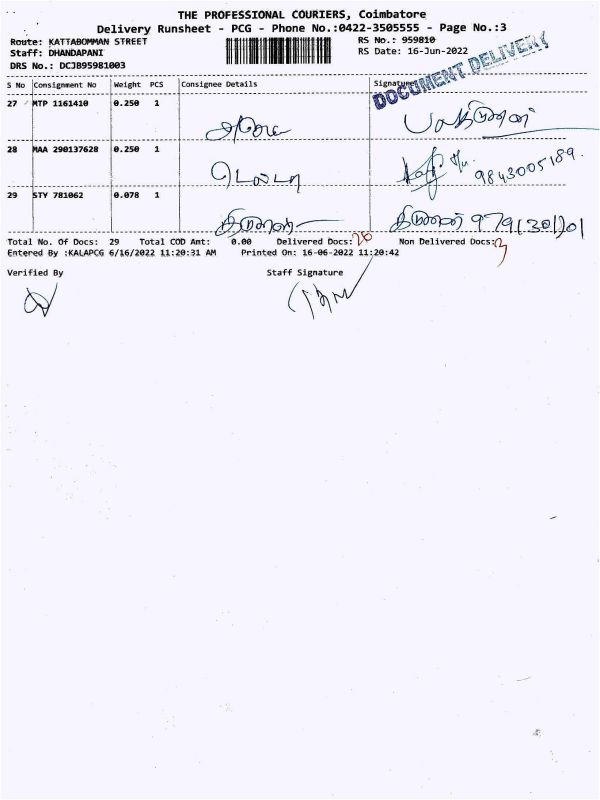 THE PROFESSIONAL COURIERS, Coimbatore
Delivery Runsheet - PCG - Phone No.:0422-3505555 - Page No.:3
Route: KATTABOMMAN STREET RS No.: 959810
Staff: DHANDAPANI RS Date: 16-Jun-2022
DRS No.: DCJB95981003
DOCUMENT DELIVERY
S No Consignment No Weight PCS Consignee Details Signature
27 MTP 1161410 0.250 1
28 MAA 290137628 0.250 1 டெல்டா 9843005189.
29 STY 781062 0.078 1
Total No. Of Docs: 29 Total COD Amt: 0.00 Delivered Docs: 26 Non Delivered Docs: 3
Entered By :KALAPCG 6/16/2022 11:20:31 AM Printed On: 16-06-2022 11:20:42
Verified By Staff Signature